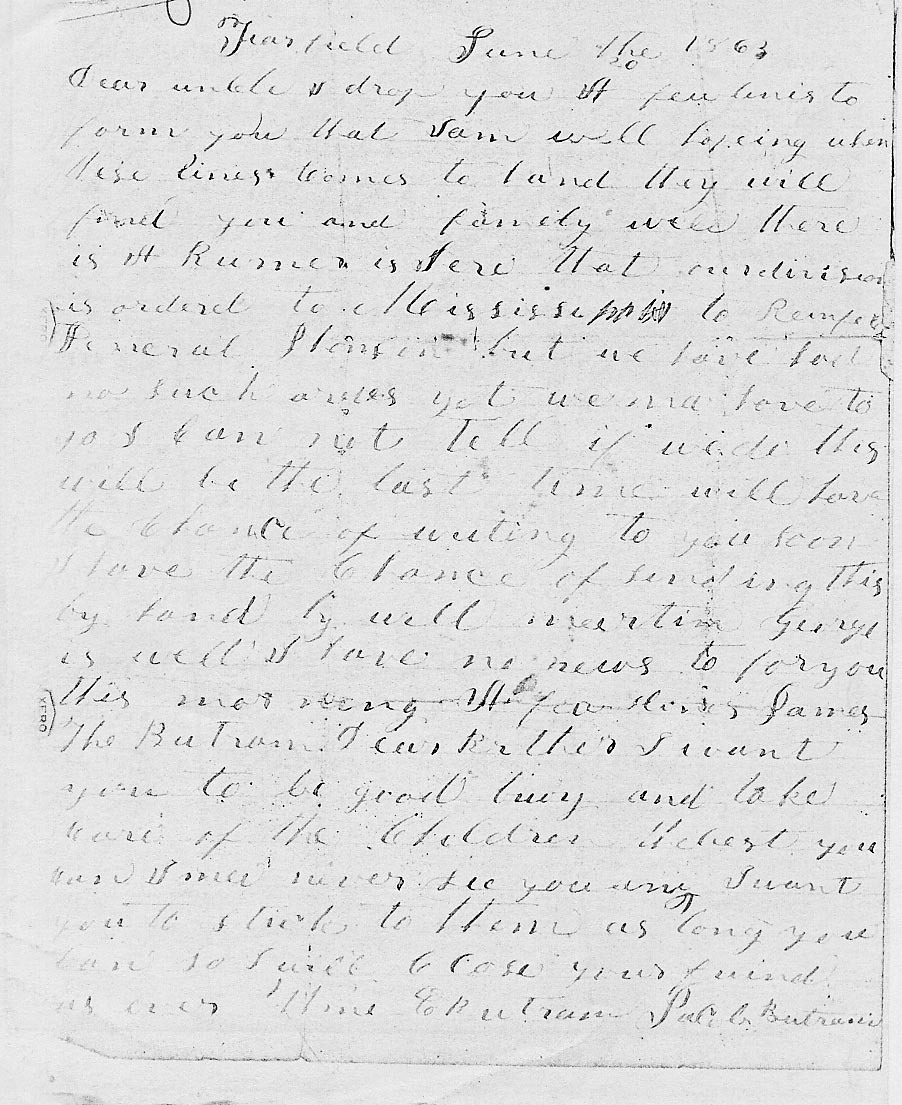 Fairfield June the 20 1863
Dear unkle I drop you A feu lines to
form you that I am well hopeing when
these lines Comes to hand they will
find you and family well there
is A Rumer is here that our division
is orderd to Mississippi to
General but we have had
no such orders yet we ma have to
go I Can not tell if we do this
will be the last time will have
the Chance of writing to you soon
I have the Chance of sending this
by hand by will martin George
is well I have no news to for you
this morneng A feu lines James
The Butram Dear Brother I want
you to be good buoy and take
Care of the Children the best you
Can I mei never see you any I want
you to stick to them as long you
Can so I will Close your friend
as ever Butram Jacob Butram